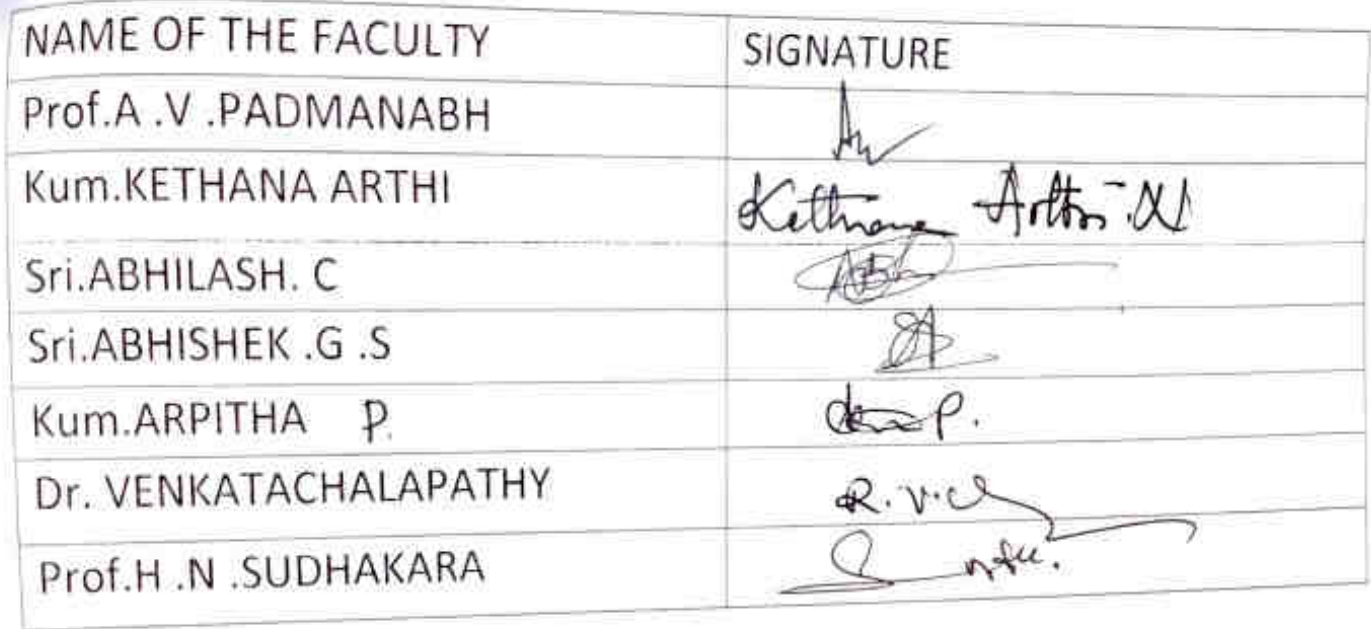 NAME OF THE FACULTY SIGNATURE
Prof.A .V .PADMANABH
Kum.KETHANA ARTHI Kethana Arthi .N
Sri.ABHILASH. C
Sri.ABHISHEK .G .S
Kum.ARPITHA P. P.
Dr. VENKATACHALAPATHY R.V.
Prof.H .N .SUDHAKARA